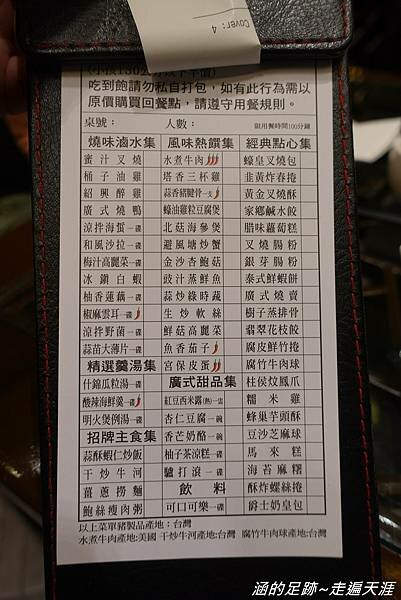 Cover: 4
吃到飽請勿私自打包，如有此行為需以
原價購買回餐點，請遵守用餐規則。
桌號： 人數： 限用餐時間100分鐘
燒味滷水集 風味熱饌集 經典點心集
蜜汁叉燒 水煮牛肉 蠔皇叉燒包
桶子油雞 塔香三杯雞 韭黃炸春捲
紹興醉雞 蒜香豬腱骨一支 黃金叉燒酥
廣式燒鴨 蠔油雞粒豆腐煲 家鄉鹹水餃
涼拌海蜇一碟 北菇海參煲 腊味蘿蔔糕
和風沙拉一碟 避風塘炒蟹 叉燒腸粉
梅汁高麗菜一碟 金沙杏鮑菇 銀芽腸粉
冰鎮白蝦 豉汁蒸鮮魚 泰式鮮蝦餅
柚香蓮藕一碟 蒜炒綠時蔬 廣式燒賣
椒麻雲耳一碟 生炒軟絲 樹子蒸排骨
涼拌野菌一碟 鮮菇高麗菜 翡翠花枝餃
蒜苗大薄片一碟 魚香茄子 腐皮鮮竹捲
精選羹湯集 宮保皮蛋 腐竹牛肉球
什錦瓜粒湯一碟 廣式甜品集 柱侯炆鳳爪
酸辣海鮮羹一碟 紅豆西米露(熱)一盅 糯米雞
明火煲例湯一碟 杏仁豆腐一碗 蜂巢芋頭酥
招牌主食集 香芒奶酪一碗 豆沙芝麻球
蒜酥蝦仁炒飯 柚子茶涼糕一碟 馬來糕
干炒牛河 驢打滾一碟 海苔麻糬
薑蔥撈麵 飲料 酥炸螺絲捲
鮑絲瘦肉粥 可口可樂一碟 爵士奶皇包
以上菜單豬製品產地：台灣
水煮牛肉產地:美國 干炒牛河產地:台灣 腐竹牛肉球產地:台灣
涵的足跡~走遍天涯